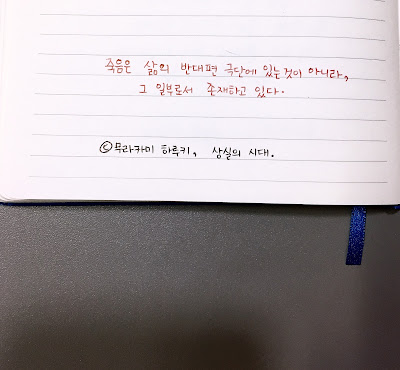 죽음은 삶의 반대편 극단에 있는 것이 아니라,
그 일부로서 존재하고 있다.
ⓒ무라카미 하루키, 상실의 시대.